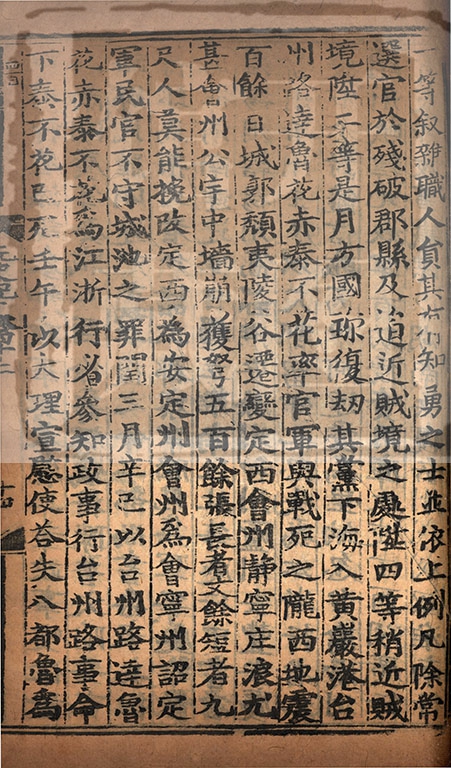 一等叙雜職人員其有智勇之士並依上例凡除常
選官於殘破郡縣及迫近賊境之處陞四等稍近賊
境陞二等是月方國珍復刼其黨下海入黃巖港台
州路達魯花赤泰不花率官軍與戰死之隴西地震
百餘日城郭頹夷陵谷遷變定西會州靜寧庄浪尤
甚會州公宇中墻崩獲弩五百餘張長者丈餘短者九
尺人莫能挽改定西為安定州會州為會寧州詔定
軍民官不守城池之罪閏三月辛巳以台州路達魯
花赤泰不花為江浙行省參知政事行台州路事命
下泰不花已死壬午以大理宣慰使荅失八都魯為